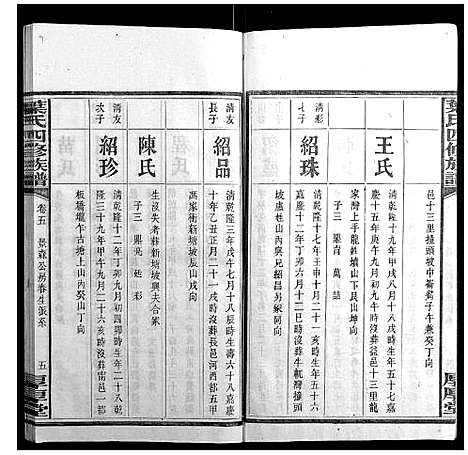 葉氏四修族譜
厚厚堂
邑十三里撞頭坡中崙艮子午兼癸丁向
王氏
清乾隆十九年甲戌八月十五未時生嘉
慶十五年庚午九月初九午時沒葬益邑十三里龍
家灣上手龍姓墳山下艮山坤向
子三
清彩
次子
紹珠
清乾隆十七年壬申十月二十一亥時生年五十六
嘉慶十二年丁卯六月十二巳時沒葬牛軛灣撞頭
坡龍姓山內與兄紹昌另冢同向
子三
清友
長子
紹品
清乾隆三年戊午七月十八辰時生壽六十八嘉慶
十年乙丑正月三十一時沒葬長邑河西都五甲
馮家衝新塘坡辰山戌向
陳氏
生沒失考葬新塘坡與夫合冢
子三
清友
次子
紹珍
清乾隆十二年丁卯九月初四卯時生年二十八乾
隆三十九年甲午九月二十六亥時沒葬南邑一都
板橋壠乍古塘上山內癸山丁向
葉氏四修族譜
卷五
景森公房春生派系
五
厚厚堂